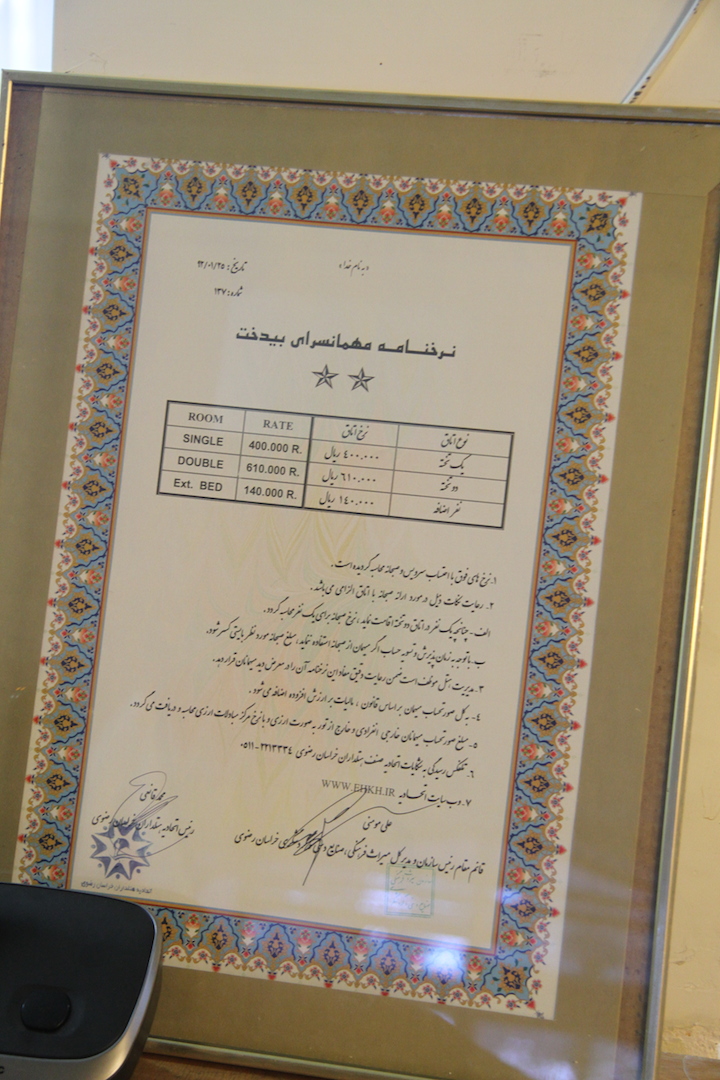 «به نام خدا»
تاریخ: ۹۲/۰۱/۲۵
شماره: ۱۳۷
نرخنامه مهمانسرای بیدخت
ROOM RATE نرخ اتاق نوع اتاق
SINGLE 400.000 R. ۴۰۰.۰۰۰ ریال یک تخته
DOUBLE 610.000 R. ۶۱۰.۰۰۰ ریال دو تخته
Ext. BED 140.000 R. ۱۴۰.۰۰۰ ریال نفر اضافه
۱. نرخ های فوق با احتساب سرویس و صبحانه محاسبه گردیده است.
۲. رعایت نکات ذیل در مورد ارائه صبحانه با اتاق الزامی می باشد.
الف- چنانچه یک نفر در اتاق دو تخته اقامت نماید، نرخ صبحانه برای یک نفر محاسبه گردد.
ب- با توجه به زمان پذیرش و تسویه حساب اگر میهمان از صبحانه استفاده ننماید، مبلغ صبحانه مورد نظر بایستی کسر شود.
۳. مدیریت هتل موظف است ضمن رعایت دقیق مفاد این نرخنامه آن را در معرض دید میهمانان قرار دهد.
۴- به کل صورتحساب میهمان بر اساس قانون، مالیات بر ارزش افزوده اضافه می شود.
۵- مبلغ صورتحساب میهمانان خارجی انفرادی و خارج از تور به صورت ارزی و با نرخ مرکز مبادلات ارزی محاسبه و دریافت می گردد.
۶. تلفکس رسیدگی به شکایات اتحادیه صنف هتلداران خراسان رضوی ۲۲۱۳۳۳۴-۰۵۱۱
۷. وب سایت اتحادیه WWW.EHKH.IR
محمد قانعی
رئیس اتحادیه هتلداران خراسان رضوی
علی مومنی
قائم مقام رئیس سازمان و مدیر کل میراث فرهنگی، صنایع دستی و گردشگری خراسان رضوی
اتحادیه هتلداران خراسان رضوی